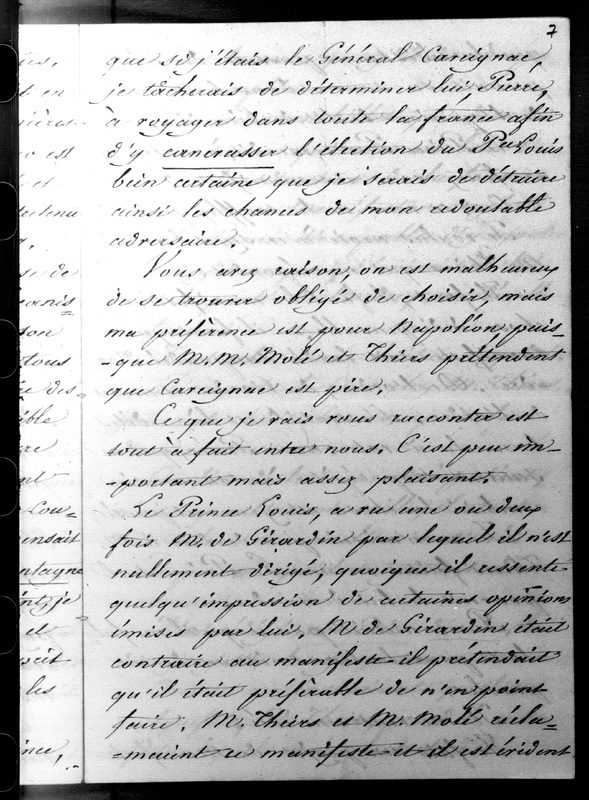 7
que si j'étais le Général Caveignac,
je tâcherais de déterminer lui, Pierre,
à voyager dans toute la france afin
d'y canevasser l'élection du Pce Louis
bien certaine que je serais de détruire
ainsi les chances de mon redoutable
adversaire.
Vous avez raison, on est malheureux
de se trouver obligé de choisir, mais
ma préférence est pour Napoléon puis-
-que M.M. Molé et Thiers prétendent
que Caveignac est pire.
Ce que je vais vous raconter est
tout à fait entre nous. C'est peu im-
-portant mais assez plaisant.
Le Prince Louis, a vu une ou deux
fois M. de Girardin par lequel il n'est
nullement dirigé, quoique il ressente
quelqu'impression de certaines opinions
émises par lui. M de Girardin était
contraire au manifeste il prétendait
qu'il était préférable de n'en point
faire. M. Thiers et M. Molé récla-
-maient ce manifeste et il est évident